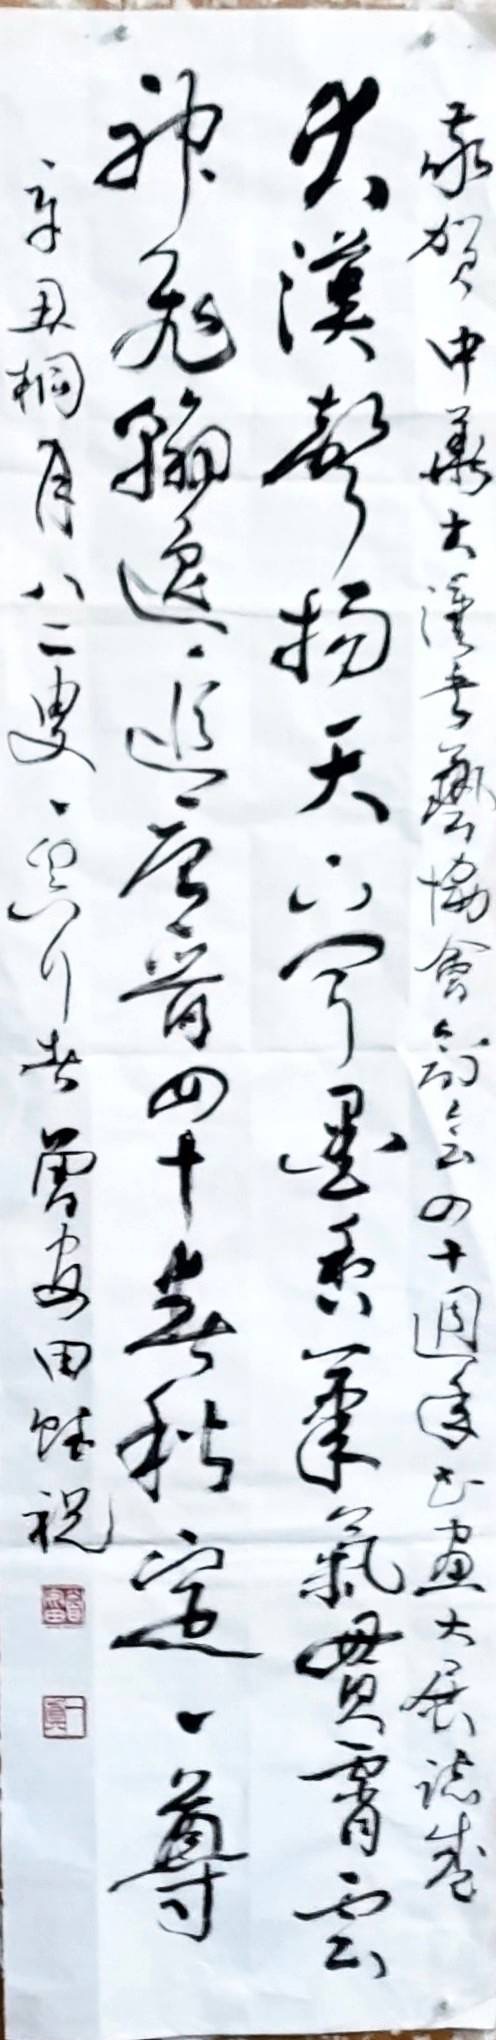 敬賀中華大漢書藝協會創會四十週年書畫大展誌盛
大漢聲揚天下寧墨香筆氣貫霄雲
神飛翰逸追唐晉四十春秋定一尊
辛丑桐月八二叟 曾安田 祝